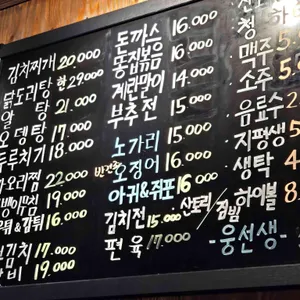 김치찌개 20,000
닭도리탕 현29000
알탕 21.000
오뎅탕 17.000
두루치기 18.000
가오리찜 22,000
골뱅이무침 19.000
17.000
19.000
돈까스 16.000
동집볶음 16.000
계란말이 14.000
부추전 15000
노가리 15000
반건조 오징어 16000
아귀&쥐포 16000
김치전 15.000
편육 17.000
청하
맥주 5
소주 5
음료수 2
지평생 5
생탁 4
산토리/짐빔 하이볼 8
-웅선생-